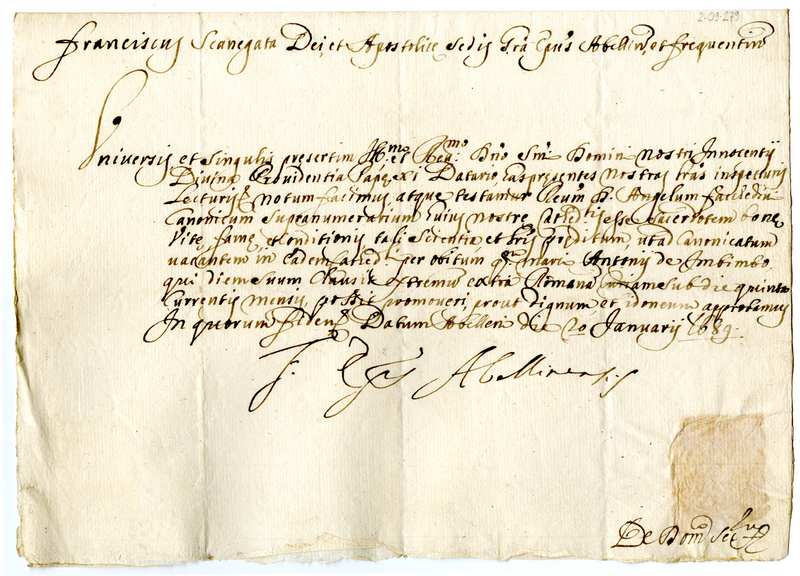 2-09-279
Franciscus Scanegata Dei, et Apostolice Sedis Gra Epus Abellin, et frequentin
Universis et singulis presertim Illmo et Revmo Dno Smi Domini nostri Innocentij
Divina Providentia Pape xi Datario has presentes nostras lras inspecturis
Lecturis notum facimus, atque testamur Revm D. Angelum
Canonicum supranumerarium huius nostre Cathedlis esse sacerdotem bone
Vite, fame, et conditionis tali scientia et preditum, ut ad Canonicatum
vacantem in eadem Cathedli per obitum qm Marci Antonij de Imbimbo,
qui diem suum Clausit extremum extra Romana Curiam sub die quinta
Currentis mensis, possit promoveri, prout dignum, et idoneum approbamus
In quorum fidem Datum Abellini die 20 Januarij 1689.
F. Epus Abellinensis
De Dom Sec